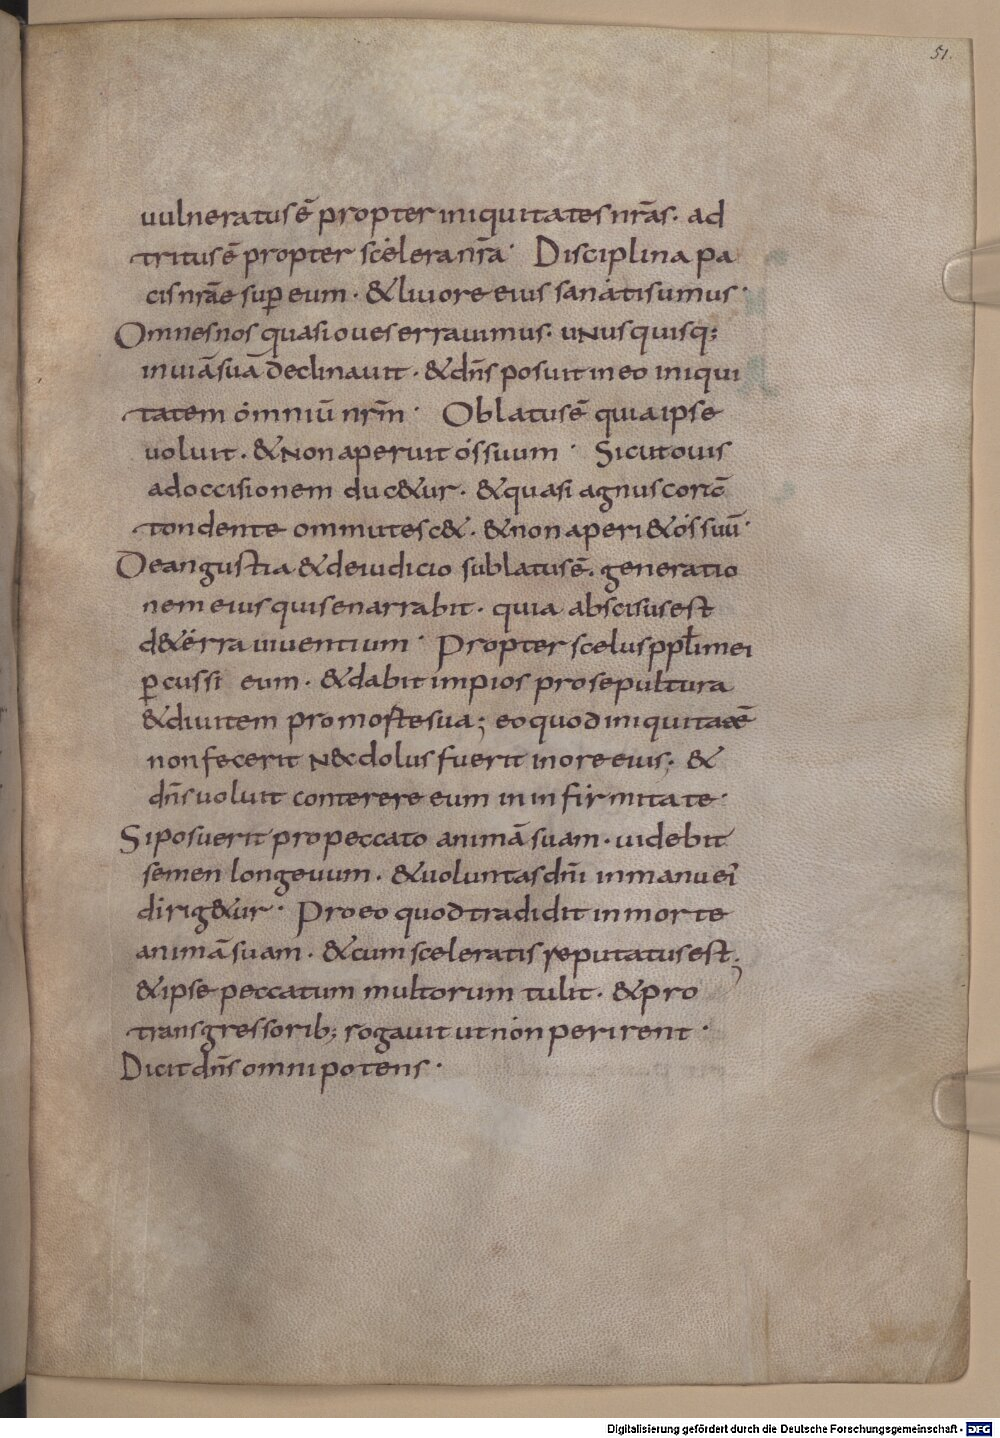 51.
uulneratus ē propter iniquitates nr̄as. ad
tritus ē propter scelera nr̄a. Disciplina pa
cis nr̄ae sup eum. & liuore eius sanati sumus.
Omnes nos quasi oues errauimus. uNus quisq;
in uiā suā declinauit. & dn̄s posuit in eo iniqui
tatem omniū nr̄m. Oblatus ē quia ipse
uoluit. & Non aperuit os suum. Sicut ouis
ad occisionem duc&ur. & quasi agnus corā
tondente ommutesc&. & non aperi& os suū.
De angustia & de iudicio sublatus ē. generatio
nem eius quis enarrabit. quia abscisus est
de terra uiuentium. Propter scelus ppl̄i mei
pcussi eum. & dabit impios pro sepultura
& diuitem pro morte sua; eo quod iniquitatē
non fecerit Nec dolus fuerit in ore eius; &
dn̄s uoluit conterere eum in infirmitate.
Si posuerit pro peccato animā suam. uidebit
semen longeuum. & uoluntas dn̄i in manu ei'
dirig&ur. Pro eo quod tradidit in morte
animā suam. & cum sceleratis reputatus est;
& ipse peccatum multorum tulit. & pro
transgressorib; rogauit ut non perirent.
Dicit dn̄s omnipotens.
Digitalisierung gefördert durch die Deutsche Forschungsgemeinschaft - DFG